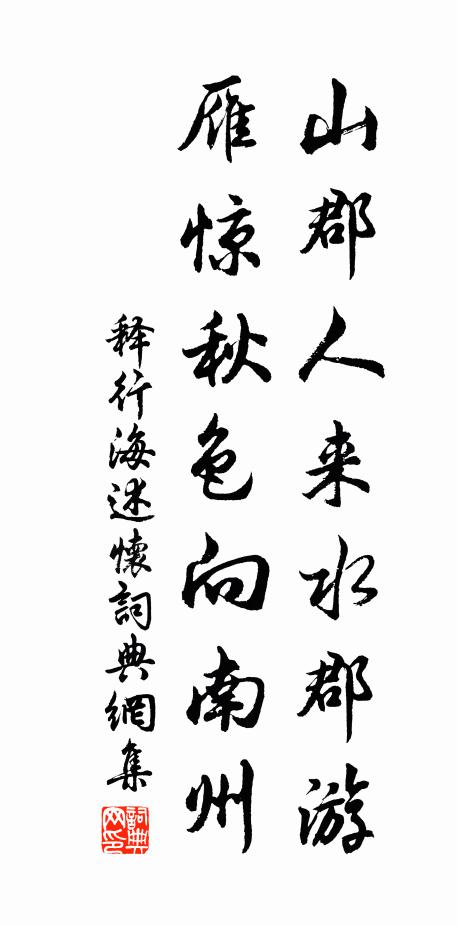 山郡人来水郡游
雁惊秋色向南州
释行海述懷詞典網集
詞典网印